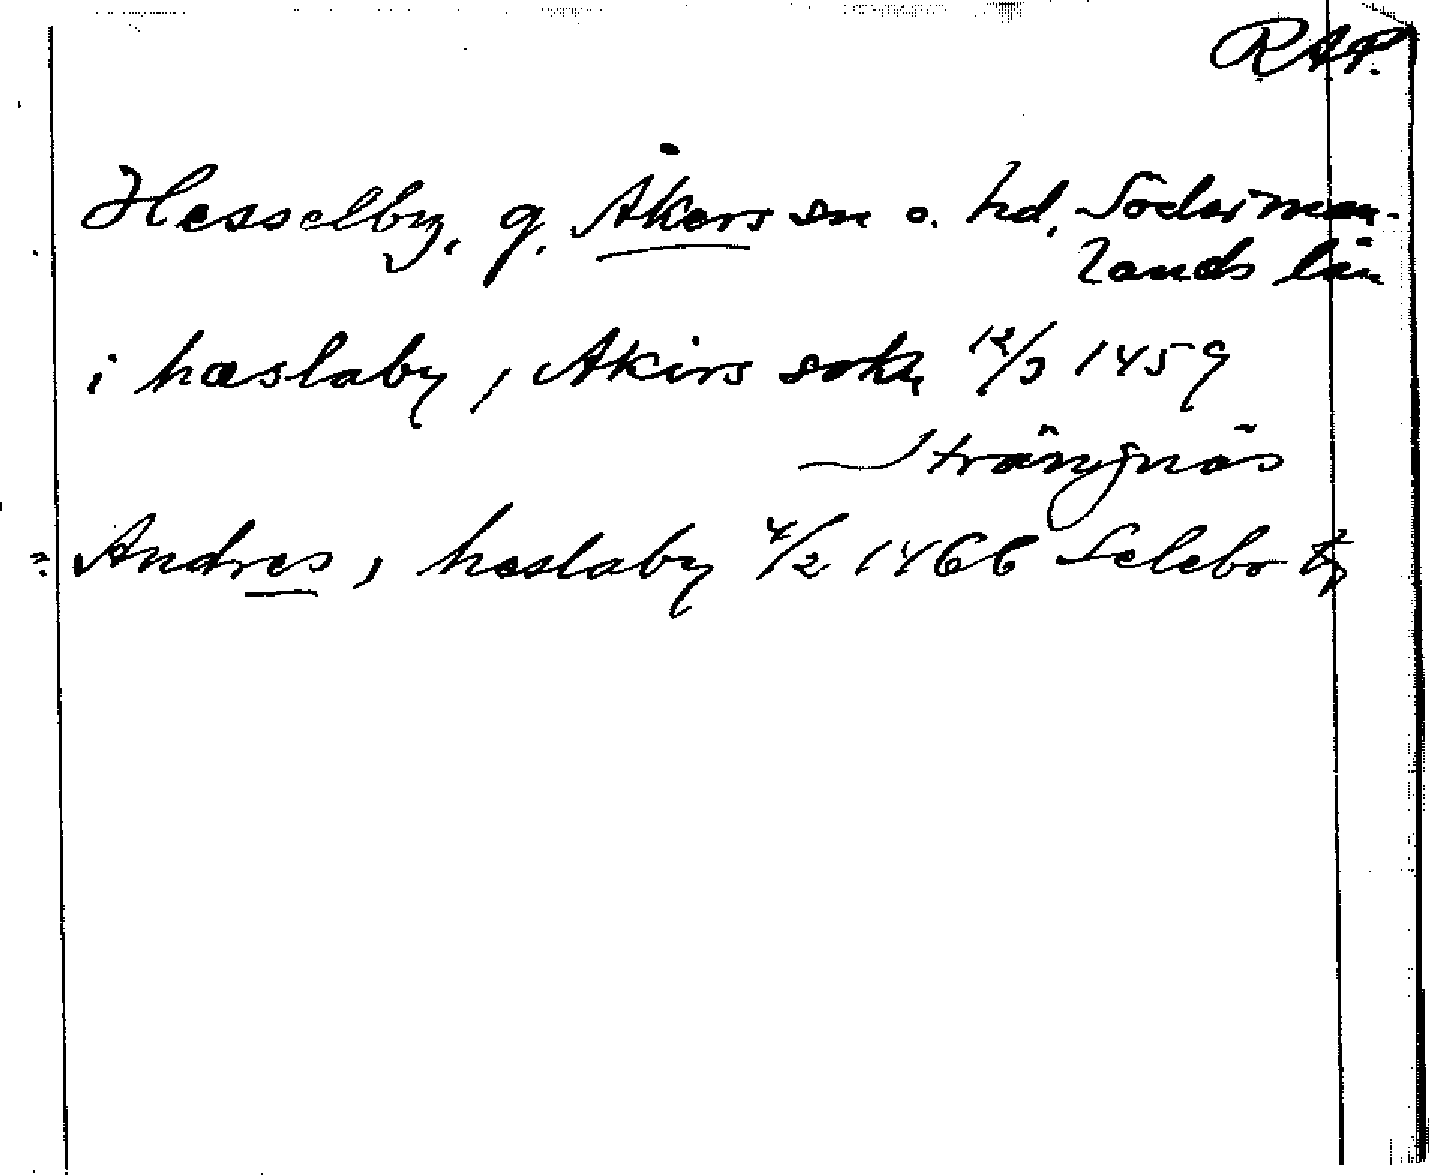 RAP.
Hesselby, g. Åkers sn o. hd, Söderman-
lands län
i hæslaby, Akirs sokn 12/3 1459
Strängnäs
Andres, heslaby 4/2 1466 Selebo tg